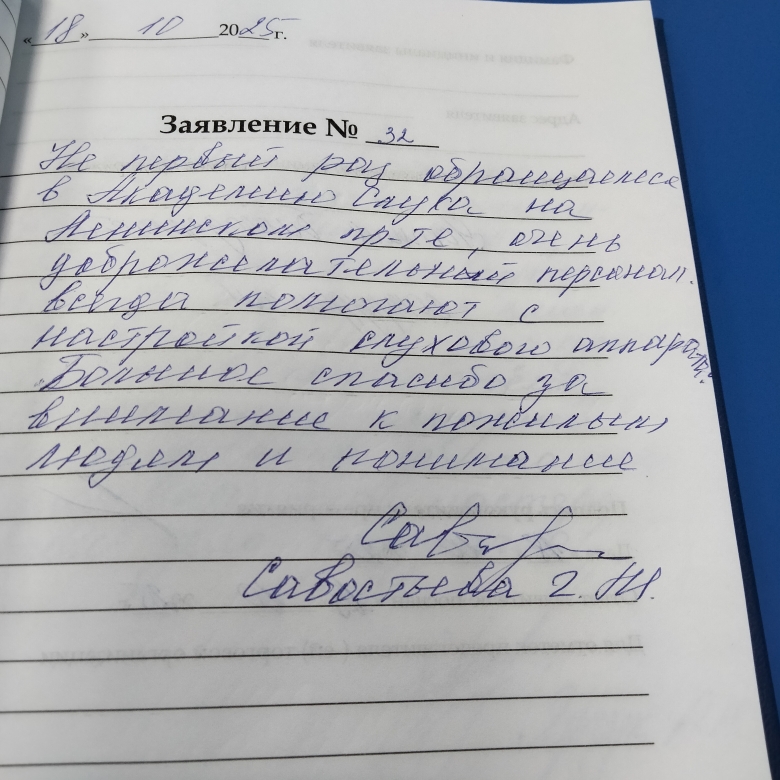 «18» 10 2025 г.
Заявление № 32
Не первый раз обращаемся
в Академию Слуха на
Ленинском пр-те, очень
доброжелательный персонал.
всегда помогают с
настройкой слухового аппарата.
Большое спасибо за
внимание к пожилым
людям и понимание
Савостьева Г. М.